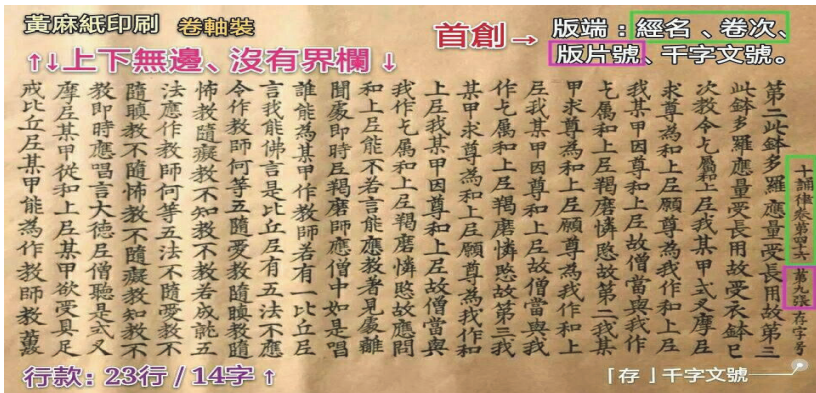 黃麻紙印刷 卷軸裝
↑↓上下無邊、沒有界欄 ↓
首創→
版端：經名、卷次、
版片號、千字文號。
十誦律卷第四十六 第九張 存字号
第二此鉢多羅應量受長用故第三
此鉢多羅應量受長用故受衣鉢已
次教令乞屬和上尼我某甲式叉摩尼
求尊為和上尼願尊為我作和上尼
某甲因尊和上尼故僧當與我作
乞屬和上尼羯磨憐愍故第二我某
甲求尊為和上尼願尊為我作和上
尼我某甲因尊和上尼故僧當與我
作乞屬和上尼羯磨憐愍故第三我
某甲求尊為和上尼願尊為我作和
上尼我某甲因尊和上尼故僧當與
我作乞屬和上尼羯磨憐愍故應問
和上尼能不若言能應教著見處離
聞處即時尼羯磨師應僧中如是唱
誰能為某甲作教師若有一比丘尼
言我能佛言是比丘尼有五法不應
令作教師何等五隨愛教隨瞋教隨
怖教隨癡教不知教不教若成就五
法應作教師何等五法不隨愛教不
隨瞋教不隨怖教不隨癡教知教不
教即時應唱言大德尼僧聽是式叉
摩尼某甲從和上尼某甲欲受具足
戒比丘尼某甲能為作教師教
行款：23行 / 14字 ↑
「存」千字文號